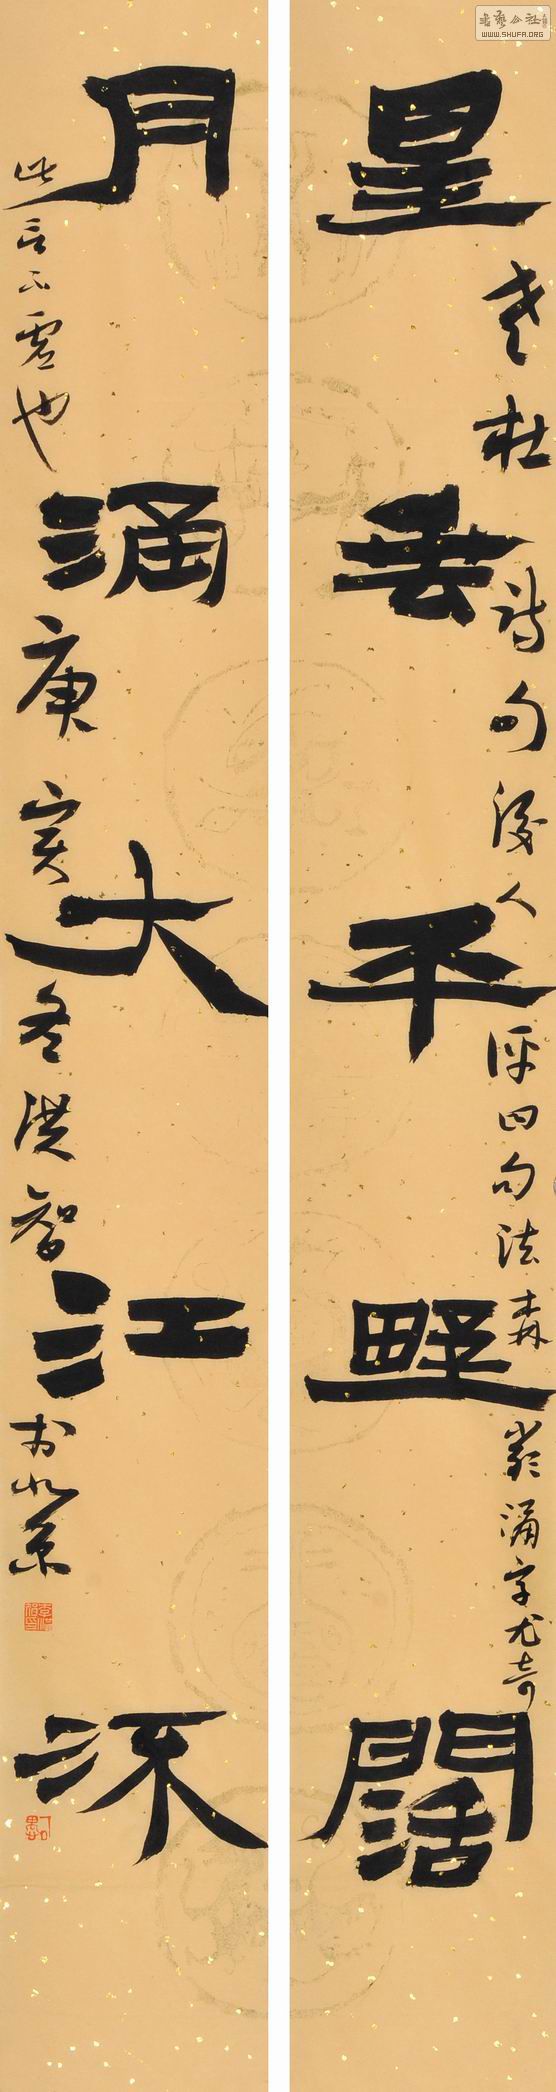 星垂平野闊
老杜詩句後人評曰句法森嚴涌字尤奇
月涌大江流
此言不虛也庚寅冬洪智書於京
書藝公社
WWW.SHUFA.ORG